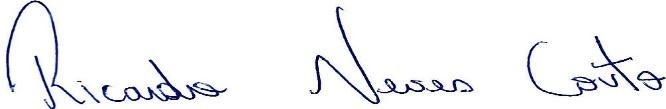 Ricardo Neves Couto